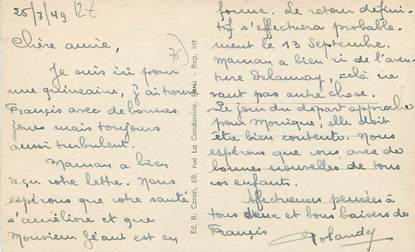 25/8/49
Chère amie,
Je suis ici pour
une quinzaine, j'ai trouvé
François avec de bonnes
joues mais toujours
aussi turbulent.
Maman a bien
reçu votre lettre. Nous
espérons que votre santé
s'améliore et que
Monsieur Géant est en
Ed. R. Caron, 68, rue La Condamine, Paris - Rep. Int
forme. Le retour défini-
tif s'effectuera probable-
ment le 13 Septembre.
Maman a bien ri de l'aven-
ture Delaunay, celà ne
vaut pas autre chose.
Le jour du départ approche
pour Monique, elle doit
être bien contente. Nous
espérons que vous avez de
bonnes nouvelles de tous
vos enfants.
Affectueuses pensées à
tous deux et bons baisers de
François